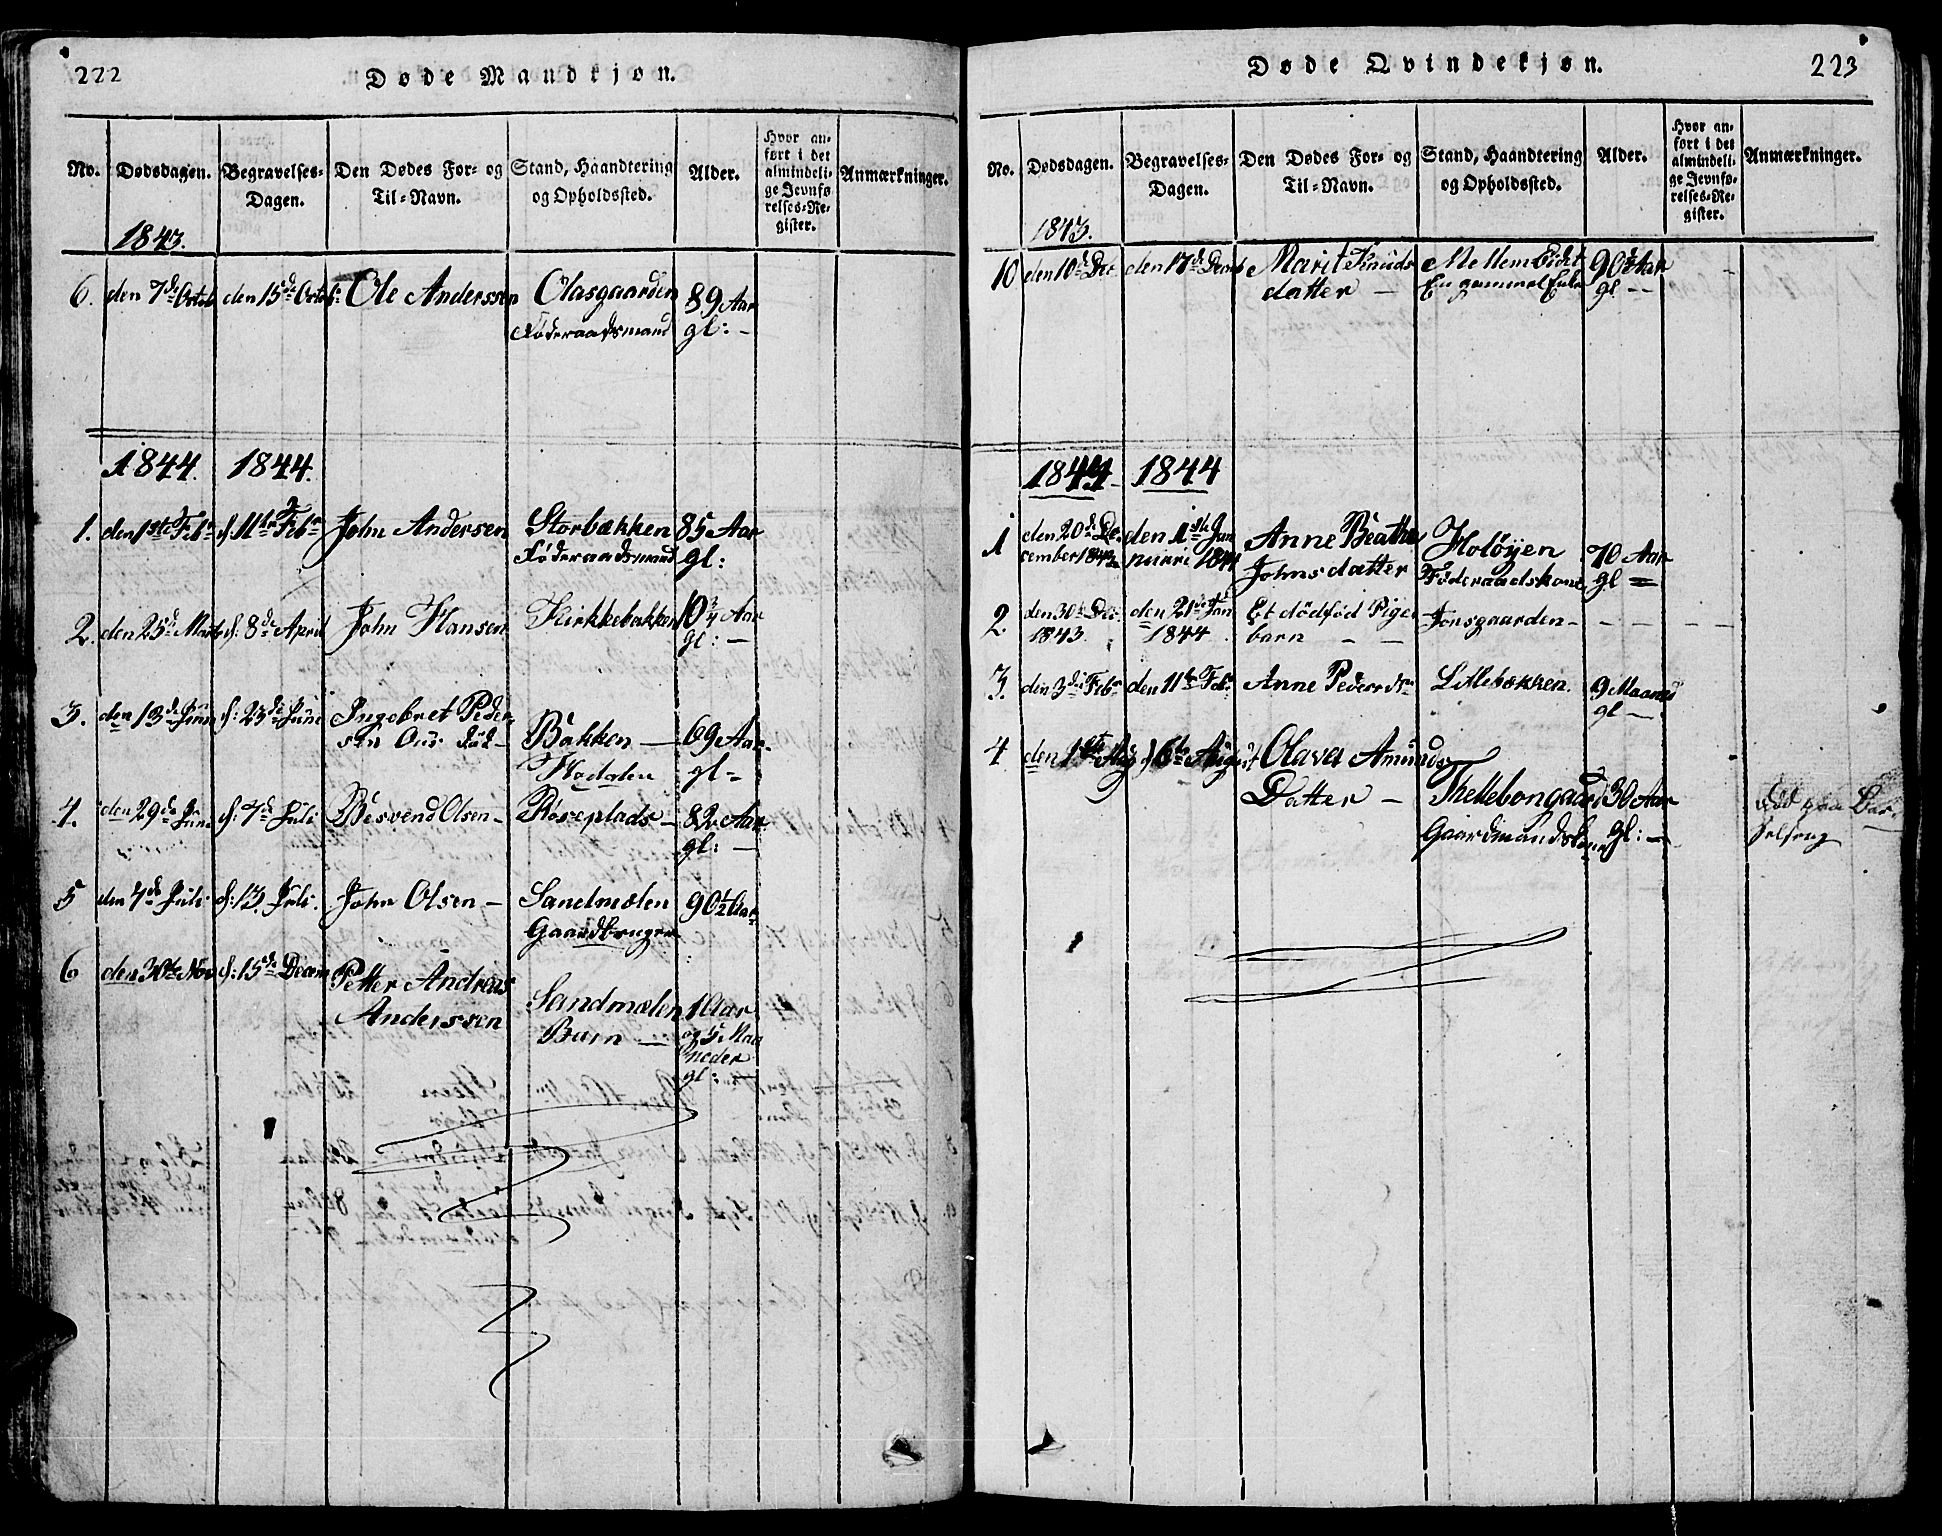 222
Døde Mandkjøn.
No.
Dødsdagen.
Begravelses-
Dagen.
Den Dødes For- og
Til-Navn.
Stand, Haandtering
og Opholdssted.
Alder.
Hvor an-
ført i det
almindeli-
ge Jevnfø-
relses-Re-
gister.
Anmærkninger.
1843.
6. den 7de Octob den 15de Octob: Ole Anderssen Olasgaarden 89 Aar
Føderaadsmand gl: —
1844. 1844.
1. den 1ste Febr d. 11te Febr John Andersen Storbækken 85 Aar
Føderaadsmand gl:
2. den 25de Marts d: 8de April John Hansen Kirkkebakken 10¾ Aar
gl: —
3. den 13de Juni d: 23de Juni Ingebret Peder
sen Bakken — 69 Aar
Hodalen gl —
4. den 29de Juni d: 7de Juli Besvend Olsen — Røseplads — 82 Aar
gl: —
5 den 7de Juli d: 13 Juli. John Olsen — Sandmælen 90½ Aar
Gaardbruger
6 den 30te Nov d: 15de Decem Petter Andreas
Anderssen Sandmælen 1 Aar
Barn — og 5 Maa
neder
gl: —
Døde Qvindekjøn.
223
No.
Dødsdagen.
Begravelses-
Dagen.
Den Dødes For- og
Til-Navn.
Stand, Haandtering
og Opholdssted.
Alder.
Hvor an-
ført i det
almindeli-
ge Jevnfø-
relses-Re-
gister.
Anmærkninger.
1843.
10 den 10de Dec den 17de Decmb Marit Knuds Mellem Eidet 90 Aar
datter — En gammel Enke gl —
1844 1844
1 den 20de De- den 1ste Jan Anne Beathe Holøyen 70 Aar
cember 1843 nuari 1844 Johnsdatter Føderaadskone gl =
2. den 30te Dec. den 21de Jan Et dødfød Pige Jonsgaarden — — — — —
1843. 1844. barn — —
3. den 3de Febr den 11te Febr Anne Peders Dtr Lillebækken. 9 Maaned
gl —
4 den 1ste Aug d 6te August Olava Amunds
Datter — Thellebongaard 30 Aar død paa Bar-
Gaardmandskone gl: — selseng